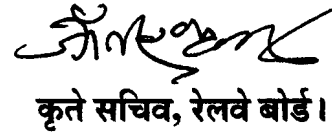 कृते सचिव, रेलवे बोर्ड।